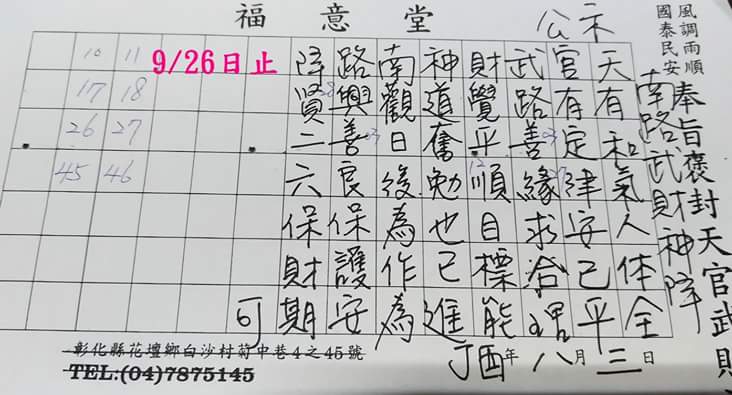 福意堂
公示
風調雨順
國泰民安
奉旨褒封天官武財
南路武財神降
天有和氣人体全
官有定津安己平
武路善緣求洽理
財覺平順目標能
神道奮勉也已進
南觀日後為作為
路興善良保護安
降賢二六保財期
可
9/26日止
10 11
17 18
26 27
45 46
丁酉年八月三日
彰化縣花壇鄉白沙村菊中巷4之45號
TEL:(04)7875145